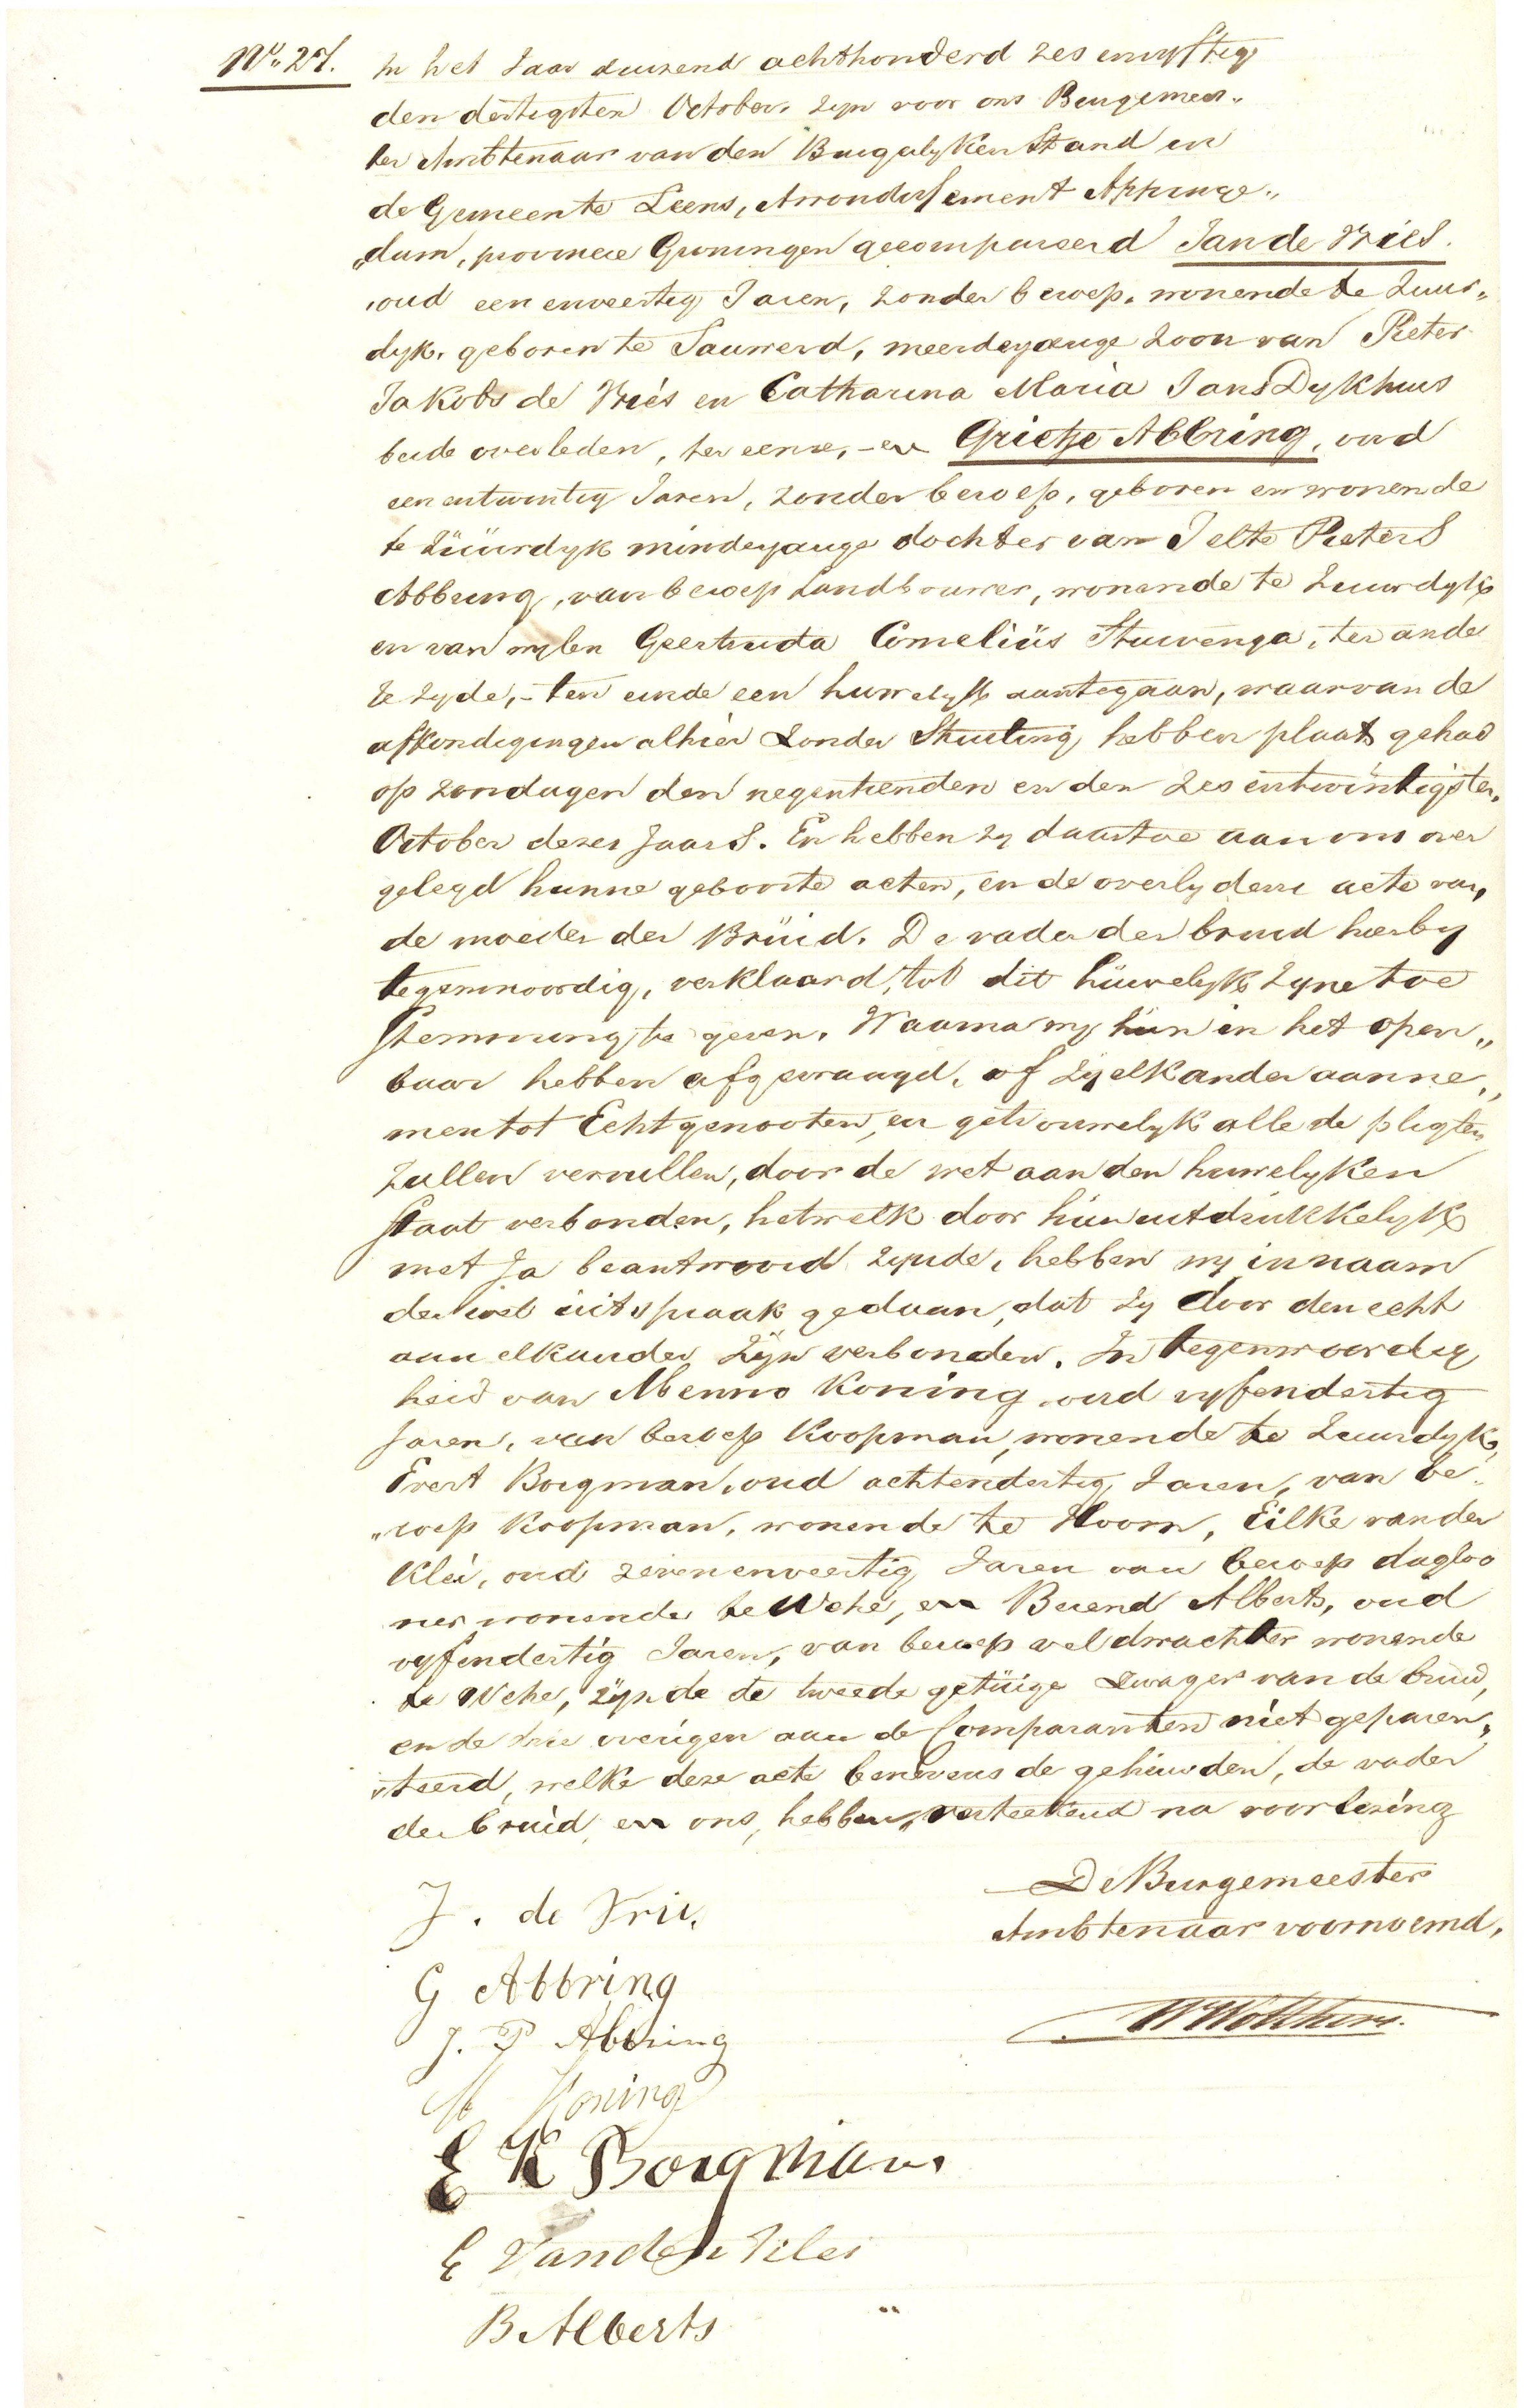 No. 27.
In het Jaar duizend achthonderd zes envyftig
den dertigsten October, zyn voor ons Burgemees„
ter Ambtenaar van den Burgelyken Stand in
de Gemeente Leens, Arrondissement Appinge„
„dam, provincie Groningen gecompareerd Jan de Vries.
oud een enveertig Jaren, zonder beroep, wonende te Zuur„
dyk, geboren te Sauwerd, meerderjarige zoon van Pieter
Jakobs de Vries en Catharina Maria Jans Dykhuis
beide overleden, ter eenre, - en Grietje Abbring, oud
een entwintig Jaren, zonder beroep, geboren en wonende
te Züürdyk minderjarige dochter van Jelte Pieters
Abbring, van beroep Landbouwer, wonende te Zuurdyk
en van wylen Geertruida Cornelius Stuivenga, ter ande
re zyde, - ten einde een huwelyk aantegaan, waarvan de
afkondigingen alhier zonder Stuiting hebben plaats gehad
op zondagen den negentienden en den zes entwintigsten
October dezes Jaars. En hebben zy daartoe aan ons over
gelegd hunne geboorte acten, en de overlydens acte van
de moeder der Brüid. De vader der bruid hierby
tegenwoordig, verklaard, tot dit hüwelyk zyne toe
stemming te geven. Waarna wy hün in het open„
baar hebben afgevraagd, of zy elkander aanne„
men tot Echtgenooten, en getrouwelyk alle de pligten
zullen vervullen, door de wet aan den huwelyken
staat verbonden, hetwelk door hün uitdrukkelyk
met Ja beantwoord zynde, hebben wy in naam
der wet üitspraak gedaan, dat zy door den echt
aan elkander zyn verbonden. In tegenwoordig
heid van Menno Koning, oud vyfendertig
Jaren, van beroep Koopman, wonende te Zuurdyk,
Evert Borgman, oud achtendertig Jaren, van be„
„roep Koopman, wonende te Hoorn, Eilke van der
Klei, oud zevenenveertig Jaren van beroep dagloo
ner wonende te Wehe, en Berend Alberts, oud
vyfendertig Jaren, van beroep veldwachter wonende
te Wehe, zynde de tweede getüige zwager van de bruid,
en de drie overigen aan de Comparanten niet geparen„
„teerd, welke deze acte benevens de gehüwden, de vader
der bruid, en ons, hebben verteekend na voorlezing
De Burgemeester
Ambtenaar voornoemd,
J. de Vries
G Abbring
J. P Abbring
M Koning
E K Borgman
E Van der Klei
B Alberts